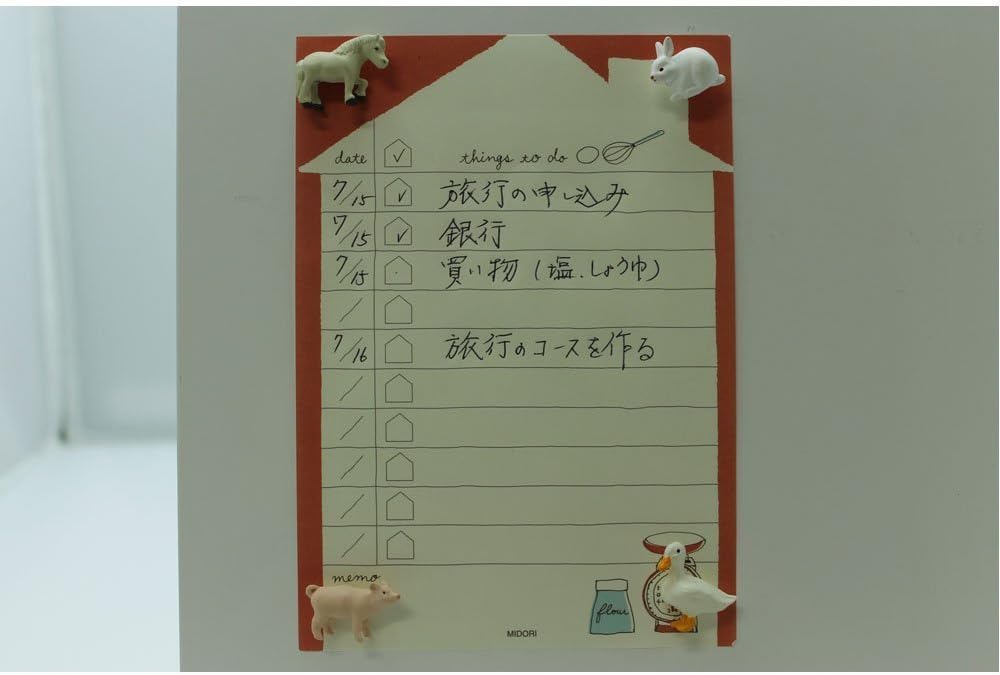 date ✓ things to do
7/15 ✓ 旅行の申し込み
7/15 ✓ 銀行
7/15 買い物 (塩.しょうゆ)
/
7/16 旅行のコースを作る
/
/
/
/
/
memo
flour
MIDORI